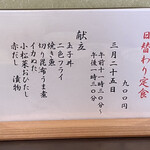 日替わり定食
九〇〇円
三月二十五日
午前十一時三〇分〜
午後一時三〇分
献立
玉子丼
二色フライ
焼き魚
切り昆布うま煮
イカぬた
小松菜おひたし
赤だし 漬物